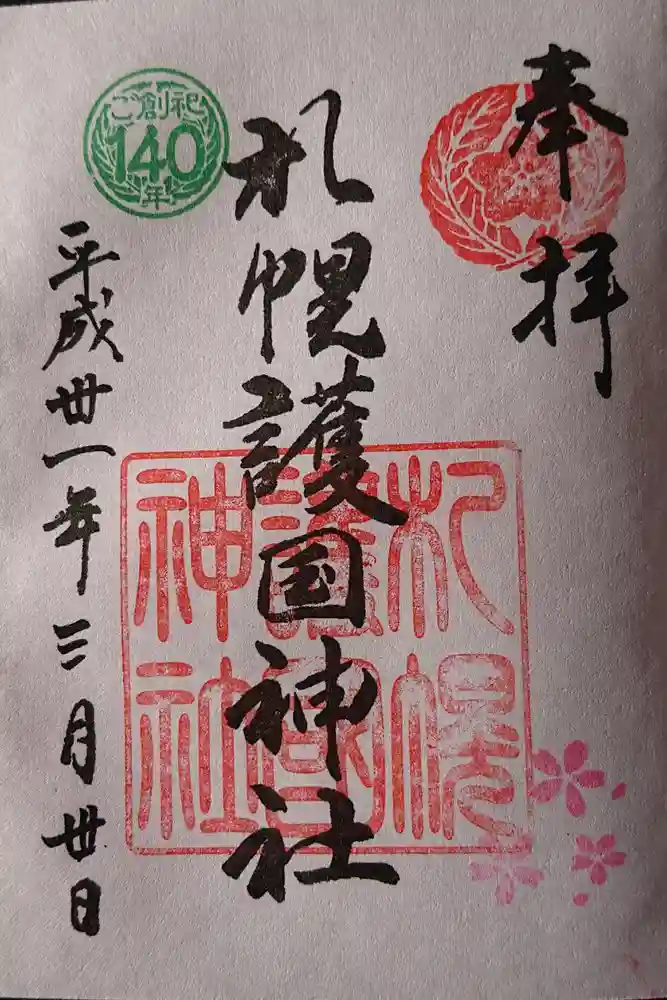 奉拝
札幌護国神社
札幌護国神社
ご創祀
140
年
平成卅一年三月卅日